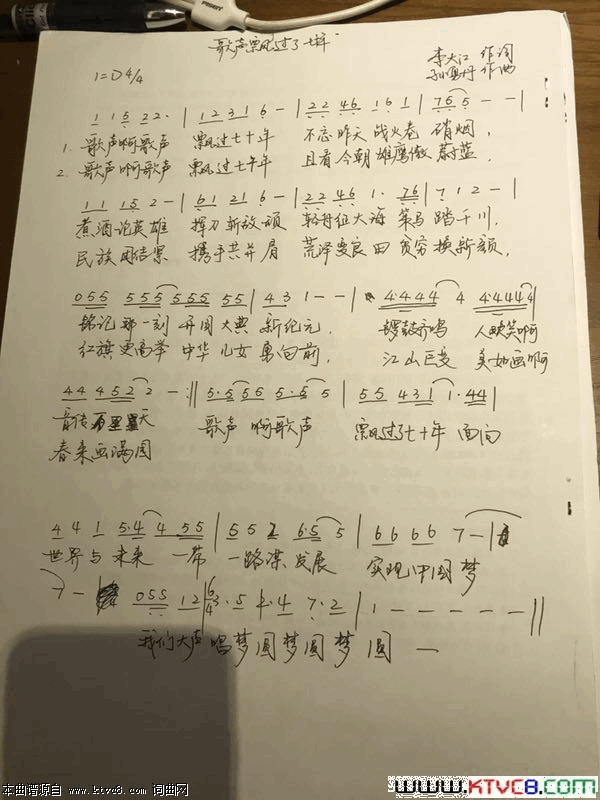 歌声飘过了七十年
1=D 4/4
李大江 作词
作曲
1 1 5 2 2· | 1 2 3 1 6 - | 2 2 4 6 1 6 1 | 7 6 5 - - |
1. 歌声啊歌声 飘过七十年 不忘昨天 战火卷 硝烟,
2. 歌声啊歌声 飘过七十年 且看今朝 雄鹰傲 蔚蓝.
1 1 1 5 2 - | 6 1 2 1 6 - | 2 2 4 6 1· 7 6 | 7 1 2 - |
煮酒论英雄 挥刀斩敌顽 大海 策马 踏千川,
民族同结景 携手共并肩 荒泽变良田 贫穷换新颜,
0 5 5 5 5 5 5 5 5 5 5 | 4 3 1 - - | 4·4 4 4 4 4·4 4 4 4 |
铭记那一刻 开国大典 新纪元. 锣鼓齐鸣 人欢笑啊
红旗更高举 中华儿女 勇向前, 江山巨变 美如画啊
4 4 4 5 2 2 - :|| 5·5 5 5 5·5 5 | 5 5 4 3 1 1·4 4 |
天 歌声 啊歌声 飘过了七十年 面向
春来画满园
4 4 1 5·4 4 5 5 | 5 5 2 6·5 5 | 6 6 6 6 7 - |
世界与未来 一带 一路谋发展 实现中国梦
7 - 0 5 5 1 2 | 6/4 3·5 2·4 7·2 | 1 - - - - - ||
我们大声 唱梦圆梦圆梦 圆 —
本曲谱源自 www.ktvc8.com 词曲网
www.KTVC8.com